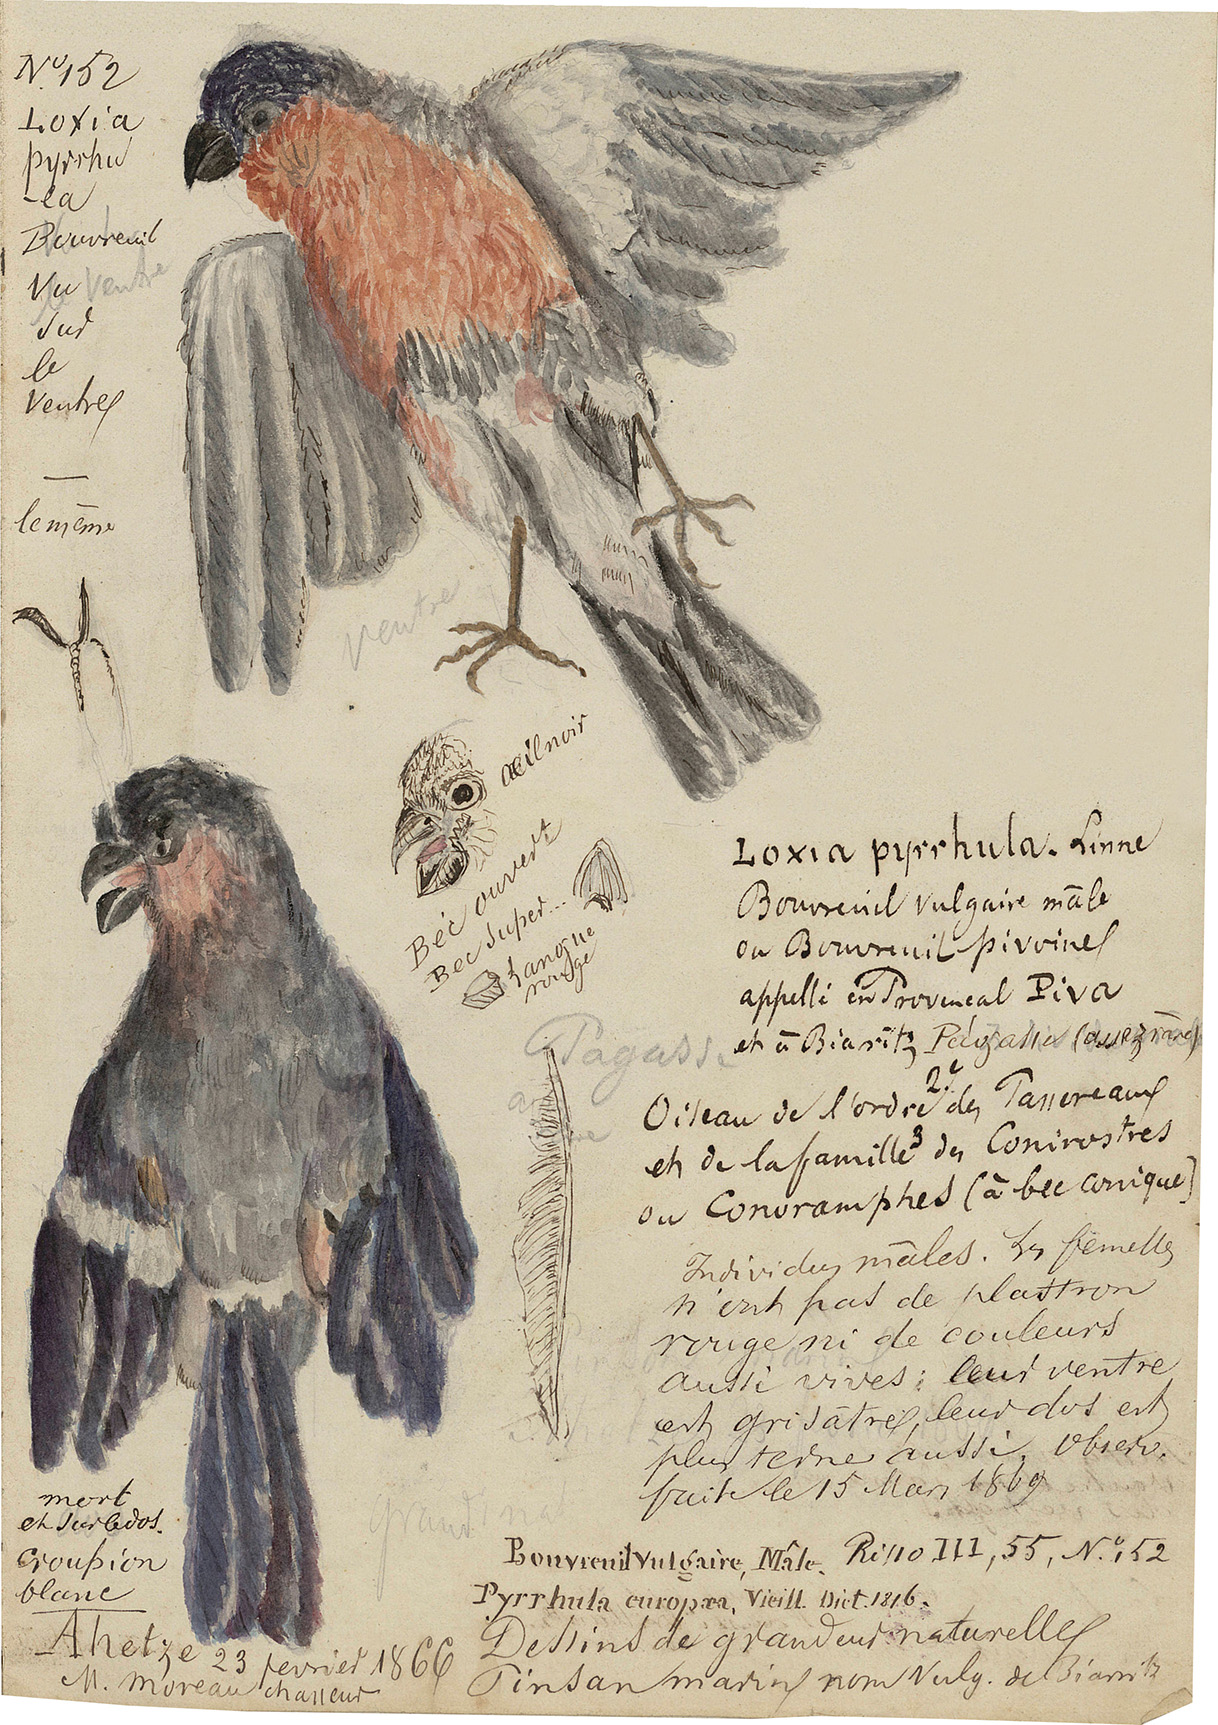 Nº 152
Loxia
pyrrhu
-la
Bouvreuil
Vu
sur
le
Ventre
le même
ventre
œil noir
Bec ouvert
Bec super...
Langue
rouge
Loxia pyrrhula. Linne
Bouvreuil vulgaire mâle
ou Bouvreuil pivoine
appellé en Provencal Piva
et à Biaritz (assez rare)
Pagass
Oiseau de l'ordre 2.e des Passereaux
et de la famille 3 des Conirostres
ou Conoramphes (à bec conique)
Individus mâles. Les femelles
n'ont pas de plastron
rouge ni de couleurs
aussi vives ; leur ventre
est grisâtre, leur dos est
plus terne aussi. Observ.
faite le 15 Mars 1869
mort
et sur le dos.
croupion
blanc
grand
Ahetze 23 fevrier 1866
M. Moreau chasseur
Bouvreuil vulgaire, Mâle. Risso III, 55, N.º 152
Pyrrhula europæa, Vieill. Dict. 1816.
Dessins de grandeur naturelle
Pinsan marin nom Vulg. de Biarritz